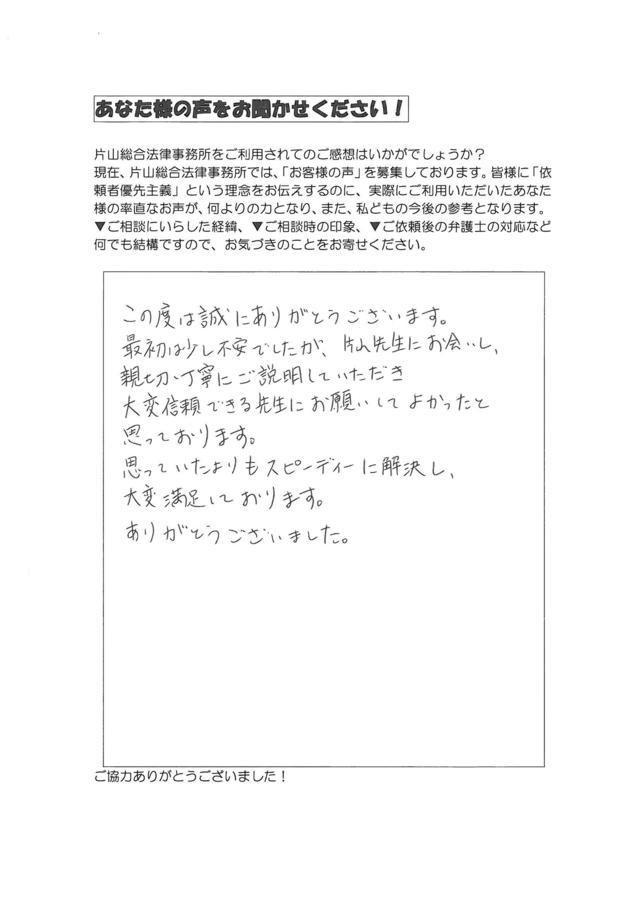 あなた様の声をお聞かせください！
片山総合法律事務所をご利用されてのご感想はいかがでしょうか？
現在、片山総合法律事務所では、「お客様の声」を募集しております。皆様に「依
頼者優先主義」という理念をお伝えするのに、実際にご利用いただいたあなた
様の率直なお声が、何よりの力となり、また、私どもの今後の参考となります。
▼ご相談にいらした経緯、▼ご相談時の印象、▼ご依頼後の弁護士の対応など
何でも結構ですので、お気づきのことをお寄せください。
この度は誠にありがとうございます。
最初は少し不安でしたが、片山先生にお会いし、
親切、丁寧にご説明していただき
大変信頼できる先生にお願いしてよかったと
思っております。
思っていたよりもスピーディーに解決し、
大変満足しております。
ありがとうございました。
ご協力ありがとうございました！